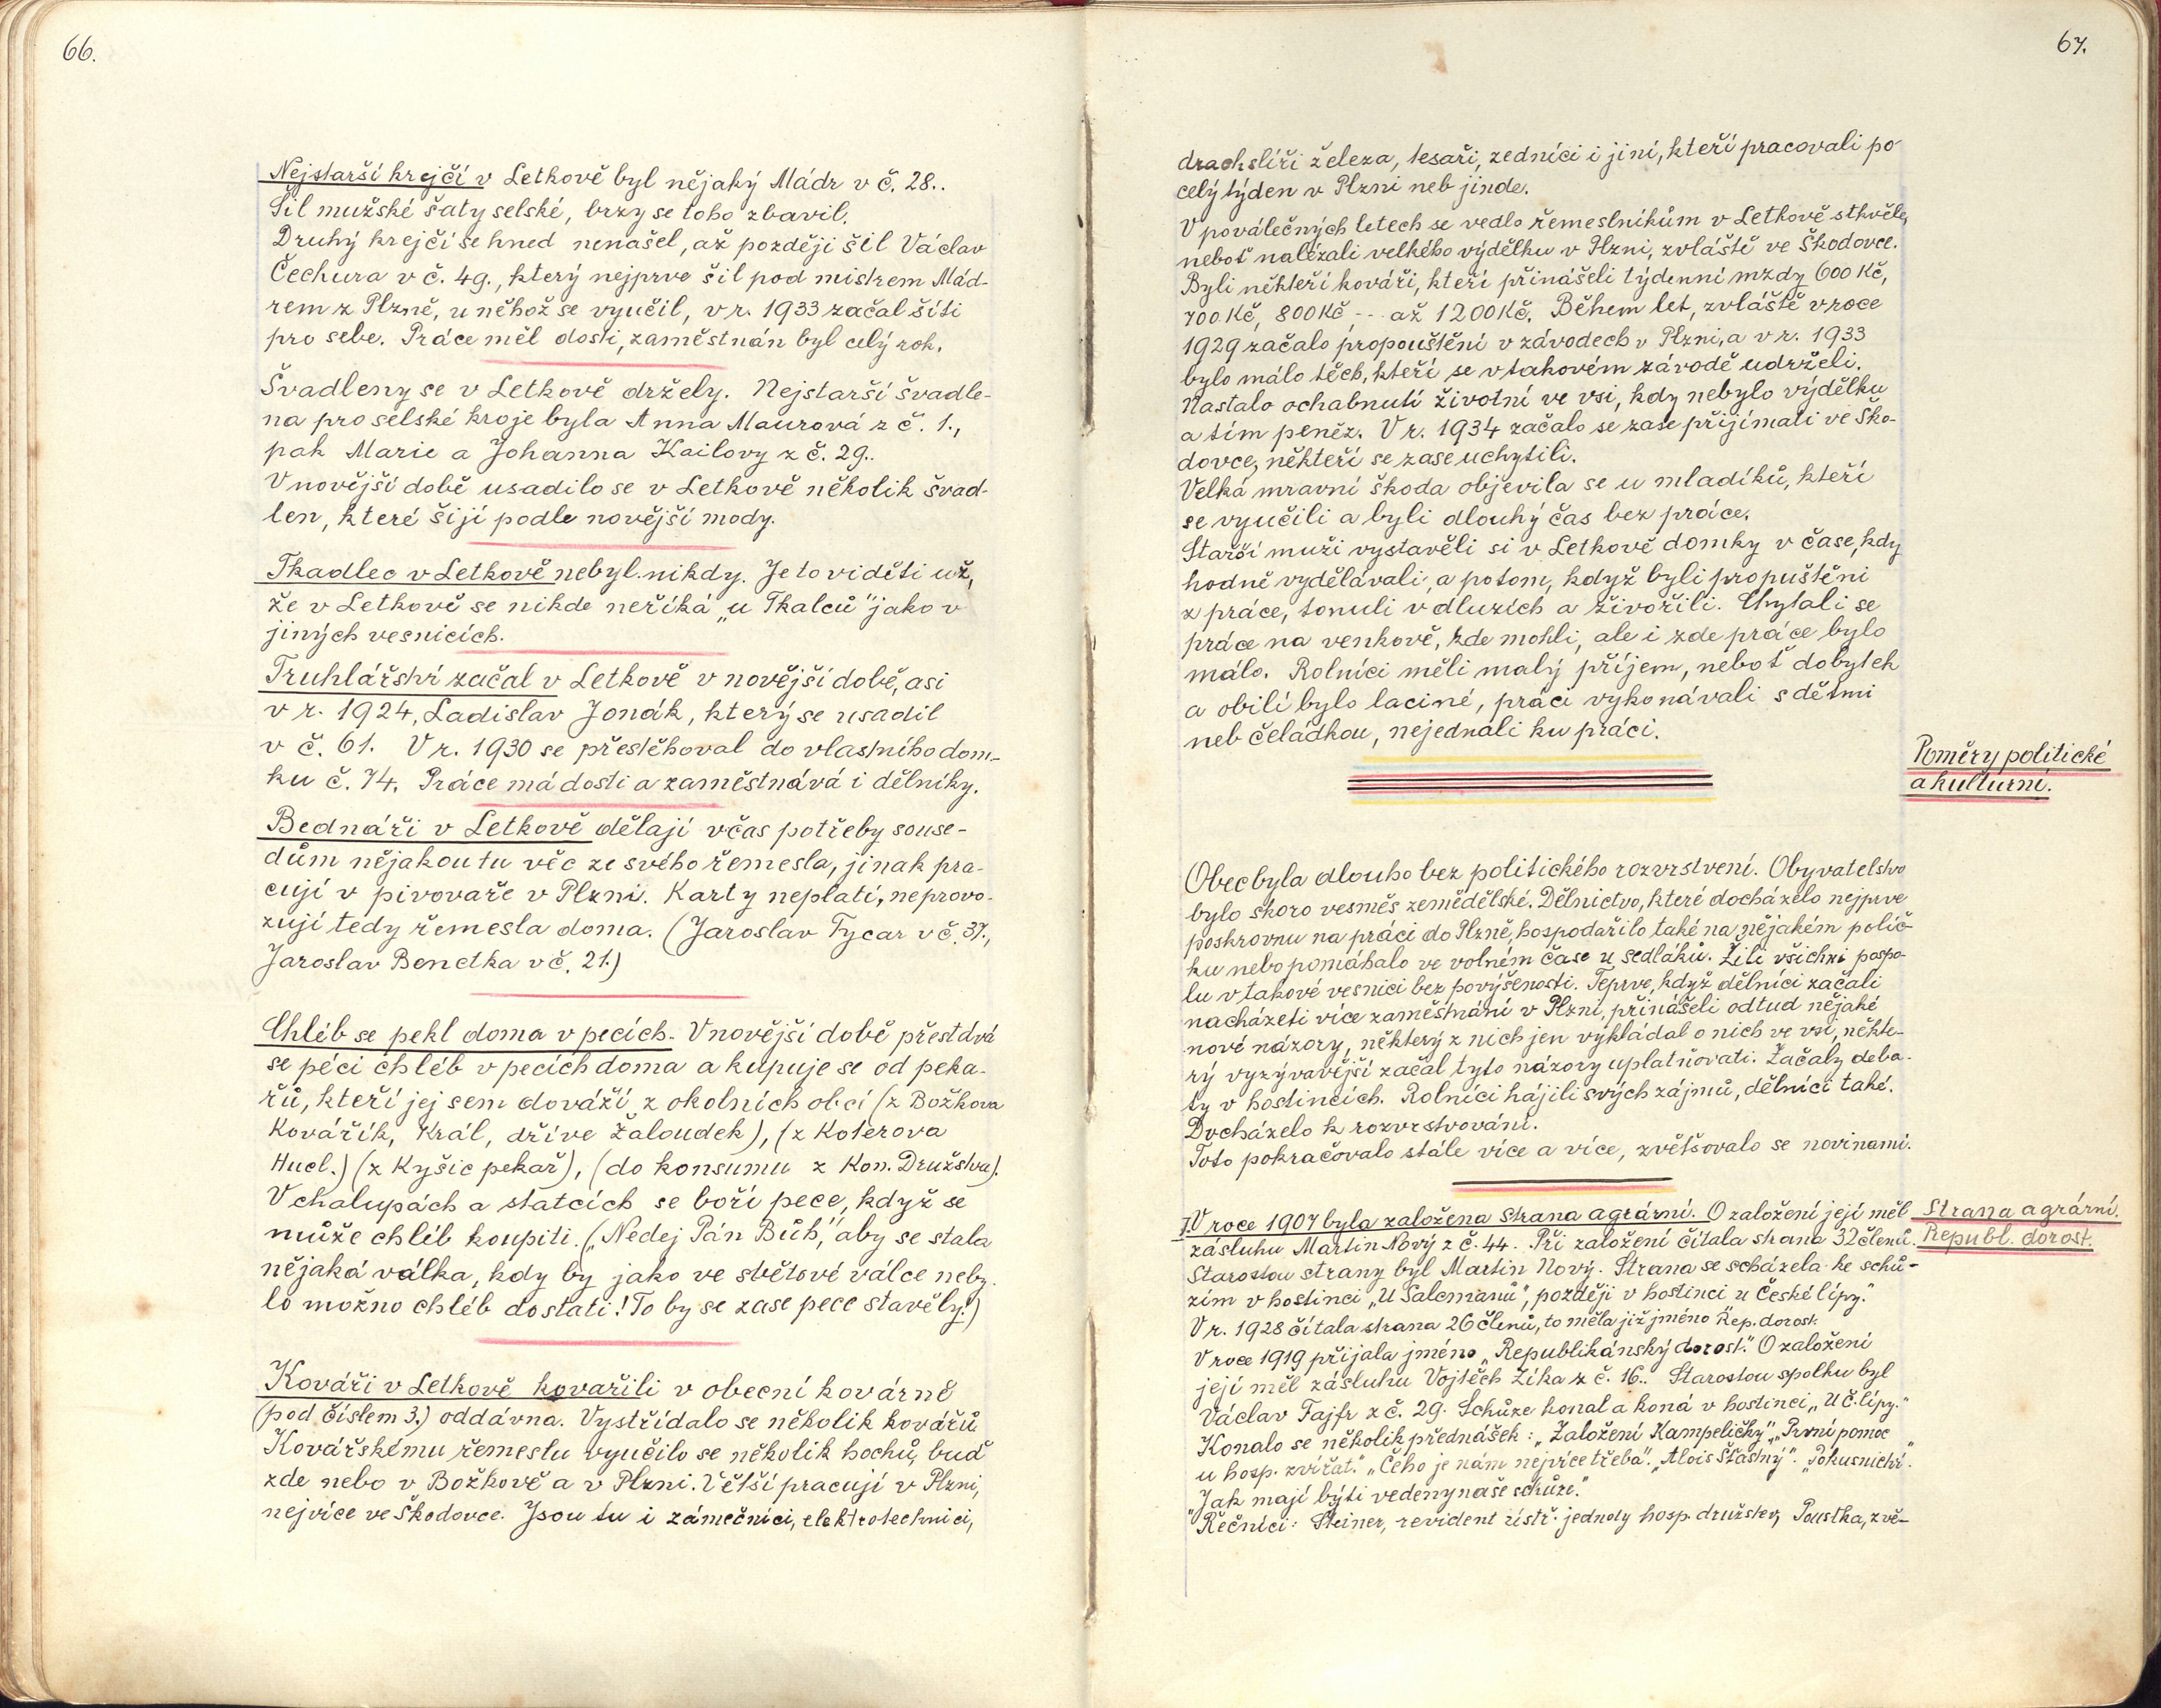 66.
Nejstarší krejčí v Letkově byl nějaký Mádr v č. 28..
Šil mužské šaty selské, brzy se toho zbavil.
Druhý krejčí se hned nenašel, až později šil Václav
Čechura v č. 49., který nejprve šil pod mistrem Mád-
rem z Plzně, u něhož se vyučil, v r. 1933 začal šíti
pro sebe. Práce měl dosti, zaměstnán byl celý rok.
Švadleny se v Letkově držely. Nejstarší švadle-
na pro selské kroje byla Anna Maurová z č. 1.,
pak Marie a Johanna Kailovy z č. 29..
V novější době usadilo se v Letkově několik švad-
len, které šijí podle novější mody.
Tkadlec v Letkově nebyl nikdy. Je to viděti už,
že v Letkově se nikde neříká „u Tkalců" jako v
jiných vesnicích.
Truhlářství začal v Letkově v novější době, asi
v r. 1924, Ladislav Jonák, který se usadil
v č. 61. V r. 1930 se přestěhoval do vlastního dom-
ku č. 74. Práce má dosti a zaměstnává i dělníky.
Bednáři v Letkově dělají včas potřeby souse-
dům nějakou tu věc ze svého řemesla, jinak pra-
cují v pivovaře v Plzni. Karty neplatí, neprovo-
zují tedy řemesla doma. (Jaroslav Tycar v č. 37.,
Jaroslav Benetka v č. 21.)
Chléb se pekl doma v pecích. V novější době přestává
se péci chléb v pecích doma a kupuje se od peka-
řů, kteří jej sem dováží z okolních obcí (z Božkova
Kovářík, Král, dříve Žaloudek), (z Koterova
Hucl.) (z Kyšic pekař), (do konsumu z Kon. Družstva).
V chalupách a statcích se boří pece, když se
může chléb koupiti. („Nedej Pán Bůh," aby se stala
nějaká válka, kdy by jako ve světové válce neby-
lo možno chléb dostati! To by se zase pece stavěly!)
Kováři v Letkově kovařili v obecní kovárně
(pod číslem 3.) oddávna. Vystřídalo se několik kovářů.
Kovářskému řemeslu vyučilo se několik hochů, buď
zde nebo v Božkově a v Plzni. Větší pracují v Plzni,
nejvíce ve Škodovce. Jsou tu i zámečníci, elektrotechnici,
67.
drachslíři železa, tesaři, zedníci i jiní, kteří pracovali po
celý týden v Plzni neb jinde.
V poválečných letech se vedlo řemeslníkům v Letkově skvěle,
neboť nalézali velkého výdělku v Plzni, zvláště ve Škodovce.
Byli někteří kováři, kteří přinášeli týdenní mzdy 600 Kč,
700 Kč, 800 Kč, -- až 1200 Kč. Během let, zvláště v roce
1929 začalo propouštění v závodech v Plzni, a v r. 1933
bylo málo těch, kteří se v takovém závodě udrželi.
Nastalo ochabnutí životní ve vsi, kdy nebylo výdělku
a tím peněz. V r. 1934 začalo se zase přijímati ve Ško-
dovce, někteří se zase uchytili.
Velká mravní škoda objevila se u mladíků, kteří
se vyučili a byli dlouhý čas bez práce.
Starší muži vystavěli si v Letkově domky v čase, kdy
hodně vydělávali, a potom, když byli propuštěni
z práce, tonuli v dluzích a živořili. Chytali se
práce na venkově, kde mohli, ale i zde práce bylo
málo. Rolníci měli malý příjem, neboť dobytek
a obilí bylo laciné, práci vykonávali s dětmi
neb čeládkou, nejednali ku práci.
Poměry politické
a kulturní.
Obec byla dlouho bez politického rozvrstvení. Obyvatelstvo
bylo skoro vesměs zemědělské. Dělnictvo, které docházelo nejprve
poskrovnu na práci do Plzně, hospodařilo také na nějakém políč-
ku nebo pomáhalo ve volném čase u sedláků. Žili všichni pospo-
lu v takové vesnici bez povýšenosti. Teprve, když dělníci začali
nacházeti více zaměstnání v Plzni, přinášeli odtud nějaké
nové názory, některý z nich jen vykládal o nich ve vsi, někte-
rý vyzývavější začal tyto názory uplatňovati. Začaly deba-
ty v hostincích. Rolníci hájili svých zájmů, dělníci také.
Docházelo k rozvrstvování.
Toto pokračovalo stále více a více, zvětšovalo se novinami.
I. V roce 1907 byla založena strana agrární. O založení její měl
Strana agrární.
zásluhu Martin Nový z č. 44. Při založení čítala strana 32 členů.
Republ. dorost.
Starostou strany byl Martin Nový. Strana se scházela ke schů-
zím v hostinci „U Salcmanů", později v hostinci u České lípy."
V r. 1928 čítala strana 26 členů, to měla již jméno Rep. dorost.
V roce 1919 přijala jméno „Republikánský dorost." O založení
její měl zásluhu Vojtěch Zíka z č. 16.. Starostou spolku byl
Václav Fajfr z č. 29. Schůze konal a koná v hostinci „U Č. lípy."
Konalo se několik přednášek: „Založení Kampeličky", „První pomoc
u hosp. zvířat." „Čeho je nám nejvíce třeba". „Alois Šťastný". „Pokusnictví".
„Jak mají býti vedeny naše schůze."
Řečníci: Steiner, revident ústř. jednoty hosp. družstev, Poustka, zvě-